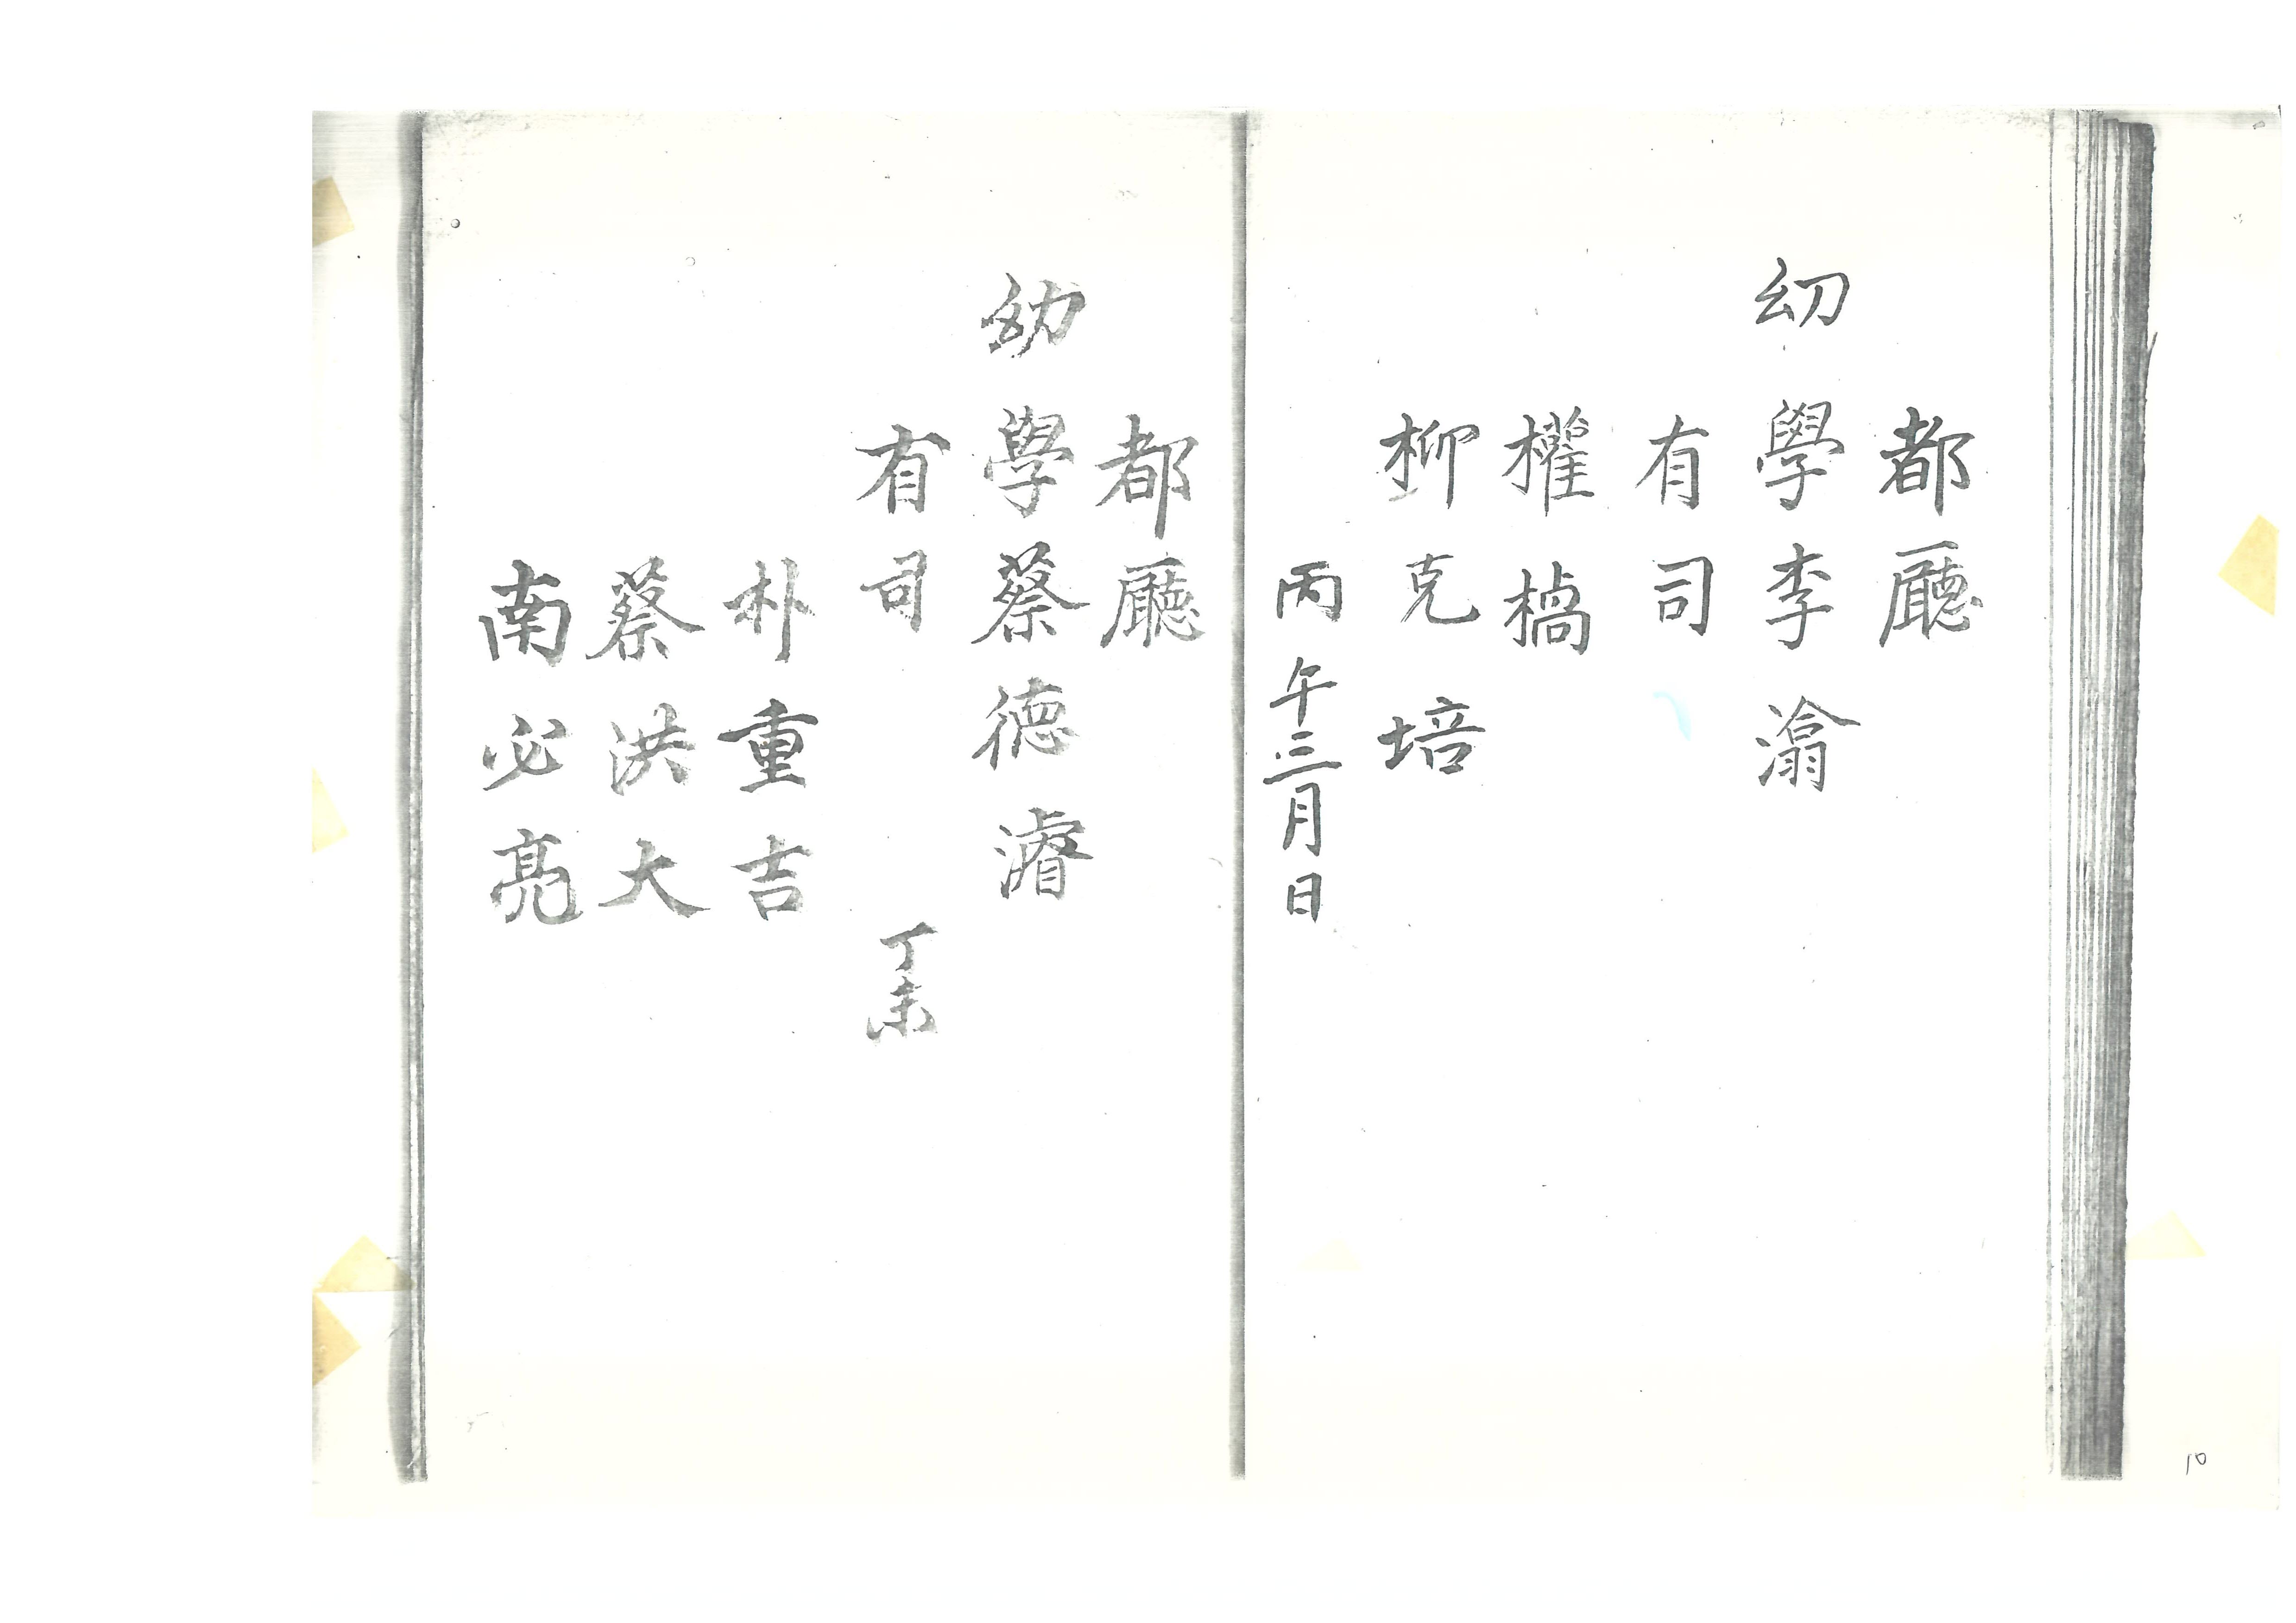 都廳
幼學李滃
有司
權槗
柳克培
丙午三月日
都廳
幼學蔡德濬
有司 丁未
朴重吉
蔡洪大
南必亮
10